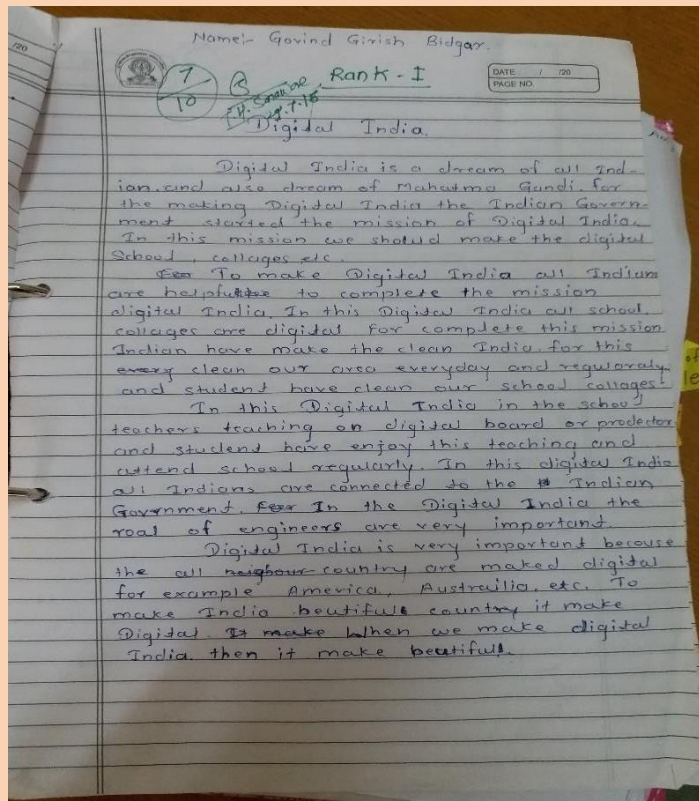 Name:- Govind Girish Bidgar.
7/10
Rank - I
DATE / /20
PAGE NO.
Digital India.
Digital India is a dream of all Ind-
ian. and also dream of Mahatma Gandi. for
the making Digital India the Indian Govern-
ment started the mission of Digital India.
In this mission we should make the digital
School, collages etc.
To make Digital India all Indian
are helpful to complete the mission
digital India. In this Digital India all school,
collages are digital for complete this mission
Indian have make the clean India. for this
every clean our area everyday and regularaly
and student have clean our school collages.
In this Digital India in the school
teachers teaching on digital board or prodector
and student have enjoy this teaching and
attend school regularly. In this digital India
all Indians are connected to the Indian
Government. In the Digital India the
roal of engineers are very important.
Digital India is very important becouse
the all neighour country are maked digital
for example America, Austrailia, etc. To
make India beutifull country it make
Digital. It make When we make digital
India. then it make beutifull.